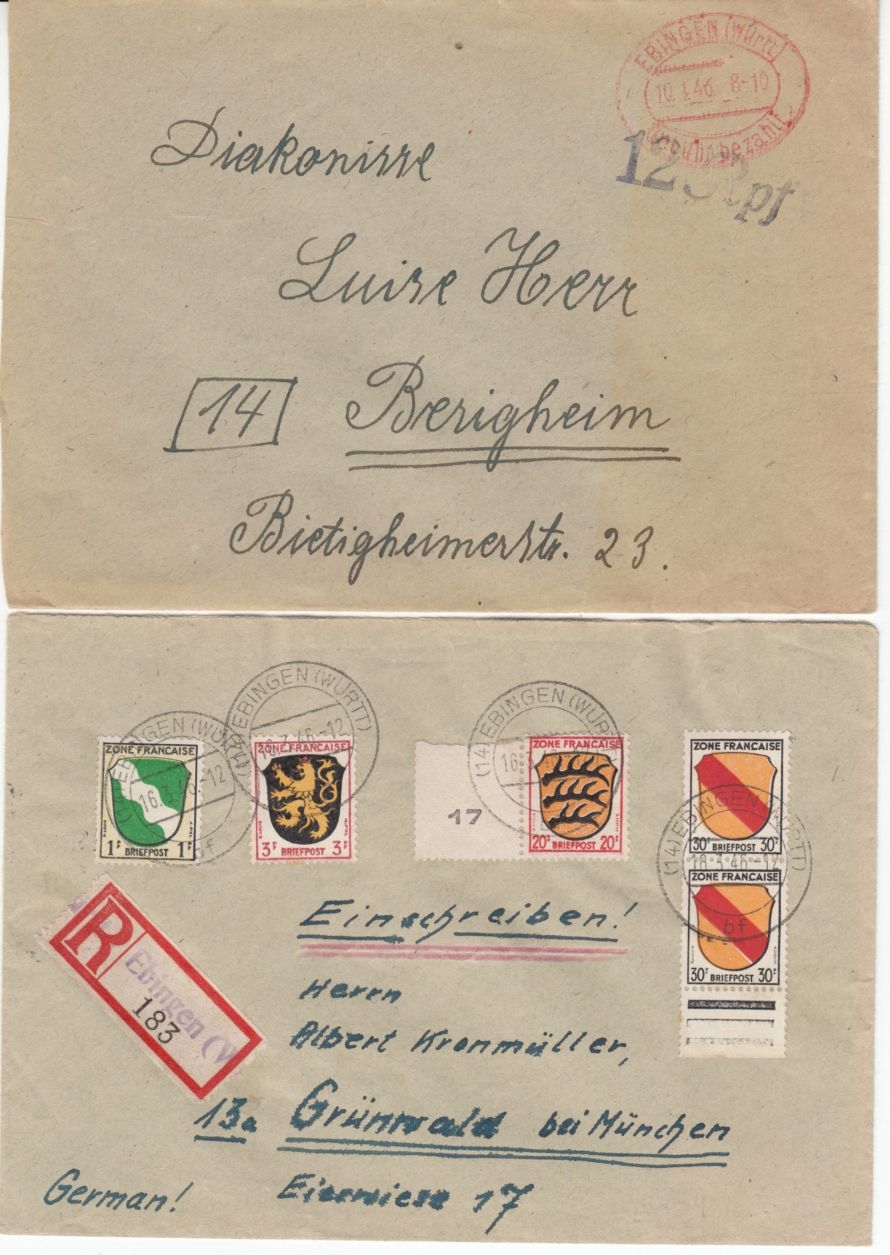 EBINGEN (Württ)
10.1.46. 8-10
Gebühr bezahlt
12 Rpf
Diakonisse
Luise Herr
14 Berigheim
Bietigheimerstr. 23.
(14) EBINGEN (WÜRTT)
16.3.46.-12
ZONE FRANCAISE
1F BRIEFPOST 1F
(14) EBINGEN (WÜRTT)
16.3.46.-12
ZONE FRANCAISE
3F BRIEFPOST 3F
17
(14) EBINGEN (WÜRTT)
ZONE FRANCAISE
20F BRIEFPOST 20F
ZONE FRANCAISE
30F BRIEFPOST 30F
(14) EBINGEN (WÜRTT)
16.3.46.-12
bf
ZONE FRANCAISE
30F BRIEFPOST 30F
R
Ebingen (W
183
Einschreiben!
Herrn
Albert Kronmüller,
13a Grünwald bei München
German!
Eierwiese 17